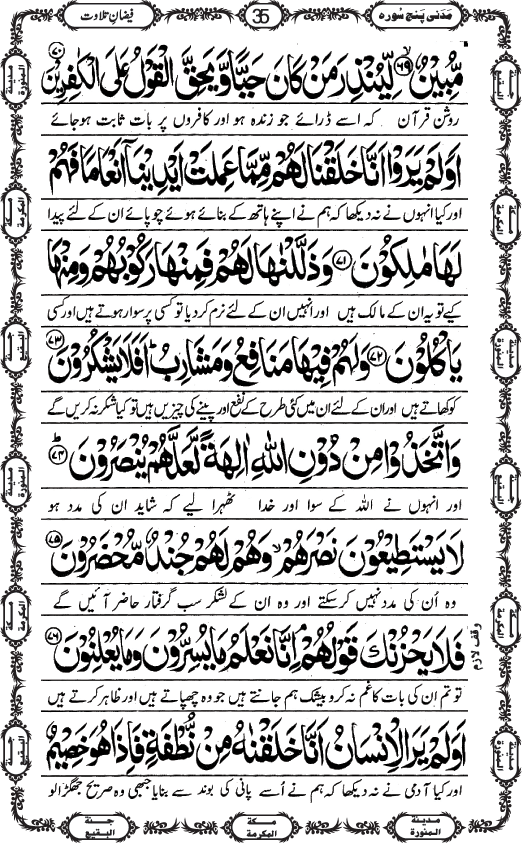 مَدَنی پَنج سُورہ
35
فیضانِ تلاوت
مُّبِیۡنٌ ﴿ۙ۶۹﴾ لِّیُنۡذِرَ مَنۡ کَانَ حَیًّا وَّ یَحِقَّ الۡقَوۡلُ عَلَی الۡکٰفِرِیۡنَ ﴿۷۰﴾
روشن قرآن کہ اسے ڈرائے جو زندہ ہو اور کافروں پر بات ثابت ہوجائے
اَوَ لَمۡ یَرَوۡا اَنَّا خَلَقۡنَا لَہُمۡ مِّمَّا عَمِلَتۡ اَیۡدِیۡنَاۤ اَنۡعَامًا فَہُمۡ
اور کیا انہوں نے نہ دیکھا کہ ہم نے اپنے ہاتھ کے بنائے ہوئے چوپائے ان کے لئے پیدا
لَہَا مٰلِکُوۡنَ ﴿۷۱﴾ وَ ذَلَّلۡنٰہَا لَہُمۡ فَمِنۡہَا رَکُوۡبُہُمۡ وَ مِنۡہَا
کیے تو یہ ان کے مالک ہیں اور انہیں ان کے لئے نرم کردیا تو کسی پر سوار ہوتے ہیں اور کسی
یَاۡکُلُوۡنَ ﴿۷۲﴾ وَ لَہُمۡ فِیۡہَا مَنَافِعُ وَ مَشَارِبُ ؕ اَفَلَا یَشۡکُرُوۡنَ ﴿۷۳﴾
کو کھاتے ہیں اور ان کے لئے ان میں کئی طرح کے نفع اور پینے کی چیزیں ہیں تو کیا شکر نہ کریں گے
وَ اتَّخَذُوۡا مِنۡ دُوۡنِ اللّٰہِ اٰلِہَۃً لَّعَلَّہُمۡ یُنۡصَرُوۡنَ ﴿ؕ۷۴﴾
اور انہوں نے اللہ کے سوا اور خدا ٹھہرا لیے کہ شاید ان کی مدد ہو
لَا یَسۡتَطِیۡعُوۡنَ نَصۡرَہُمۡ ۙ وَ ہُمۡ لَہُمۡ جُنۡدٌ مُّحۡضَرُوۡنَ ﴿۷۵﴾
وہ اُن کی مدد نہیں کرسکتے اور وہ ان کے لشکر سب گرفتار حاضر آئیں گے
فَلَا یَحۡزُنۡکَ قَوۡلُہُمۡ ۘ اِنَّا نَعۡلَمُ مَا یُسِرُّوۡنَ وَ مَا یُعۡلِنُوۡنَ ﴿۷۶﴾
وقف لازم
تو تم ان کی بات کا غم نہ کرو بیشک ہم جانتے ہیں جو وہ چھپاتے ہیں اور ظاہر کرتے ہیں
اَوَ لَمۡ یَرَ الۡاِنۡسَانُ اَنَّا خَلَقۡنٰہُ مِنۡ نُّطۡفَۃٍ فَاِذَا ہُوَ خَصِیۡمٌ
اور کیا آدمی نے نہ دیکھا کہ ہم نے اُسے پانی کی بوند سے بنایا جبھی وہ صریح جھگڑالو
جنۃ البقیع
مکۃ المکرمۃ
مدینۃ المنورۃ
جنۃ البقیع
مکۃ المکرمۃ
مدینۃ المنورۃ
مدینۃ المنورۃ
مکۃ المکرمۃ
جنۃ البقیع
مدینۃ المنورۃ
مکۃ المکرمۃ
جنۃ البقیع
جنۃ البقیع
مکۃ المکرمۃ
مدینۃ المنورۃ